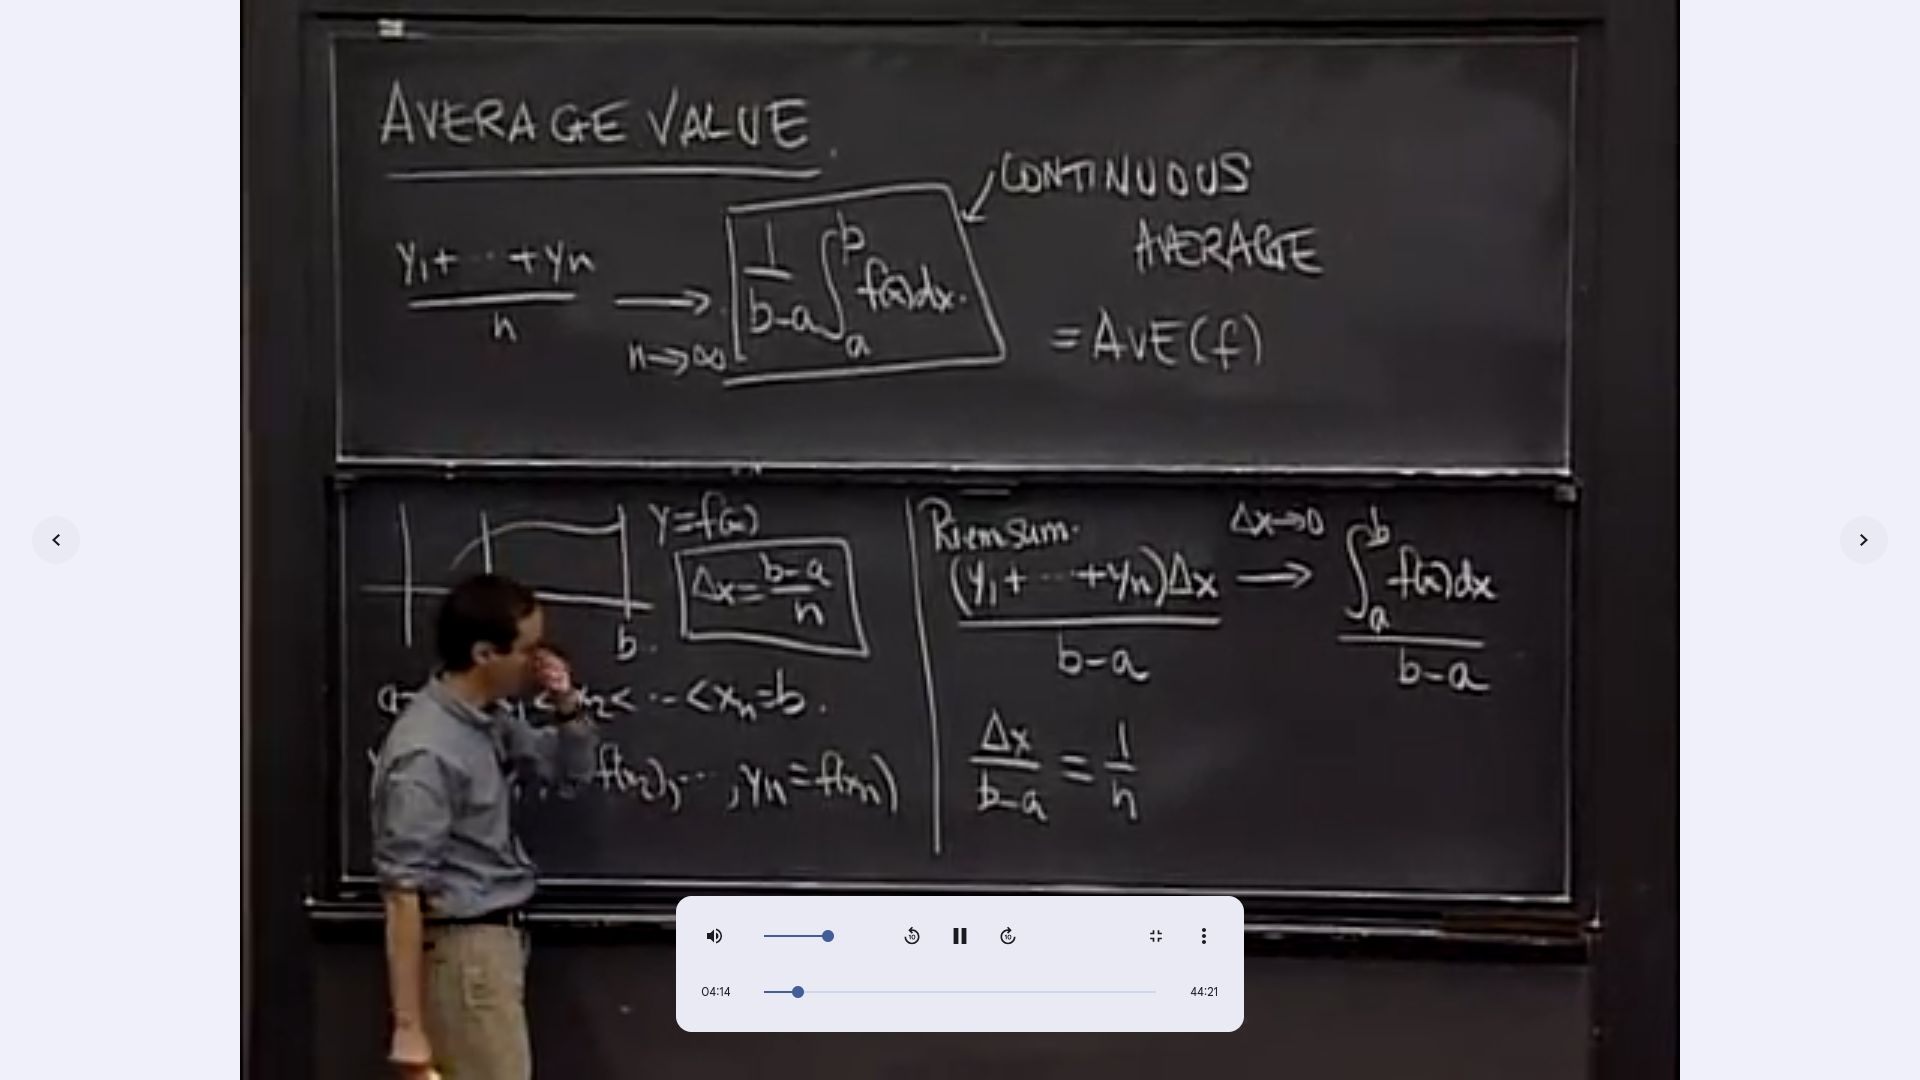 AVERAGE VALUE
y₁+ ⋯ +yₙ / n
⟶
n→∞
1/(b-a) ∫ₐᵇ f(x)dx.
CONTINUOUS
AVERAGE
= AVE(f)
y=f(x)
Δx = (b-a)/n
b.
a
<x₂< ⋯ <xₙ=b.
f(x₂), ⋯ , yₙ=f(xₙ))
Riem sum.
(y₁+ ⋯ +yₙ)Δx / (b-a)
Δx→0
⟶
∫ₐᵇ f(x)dx / (b-a)
Δx/(b-a) = 1/n
10
10
04:14
44:21